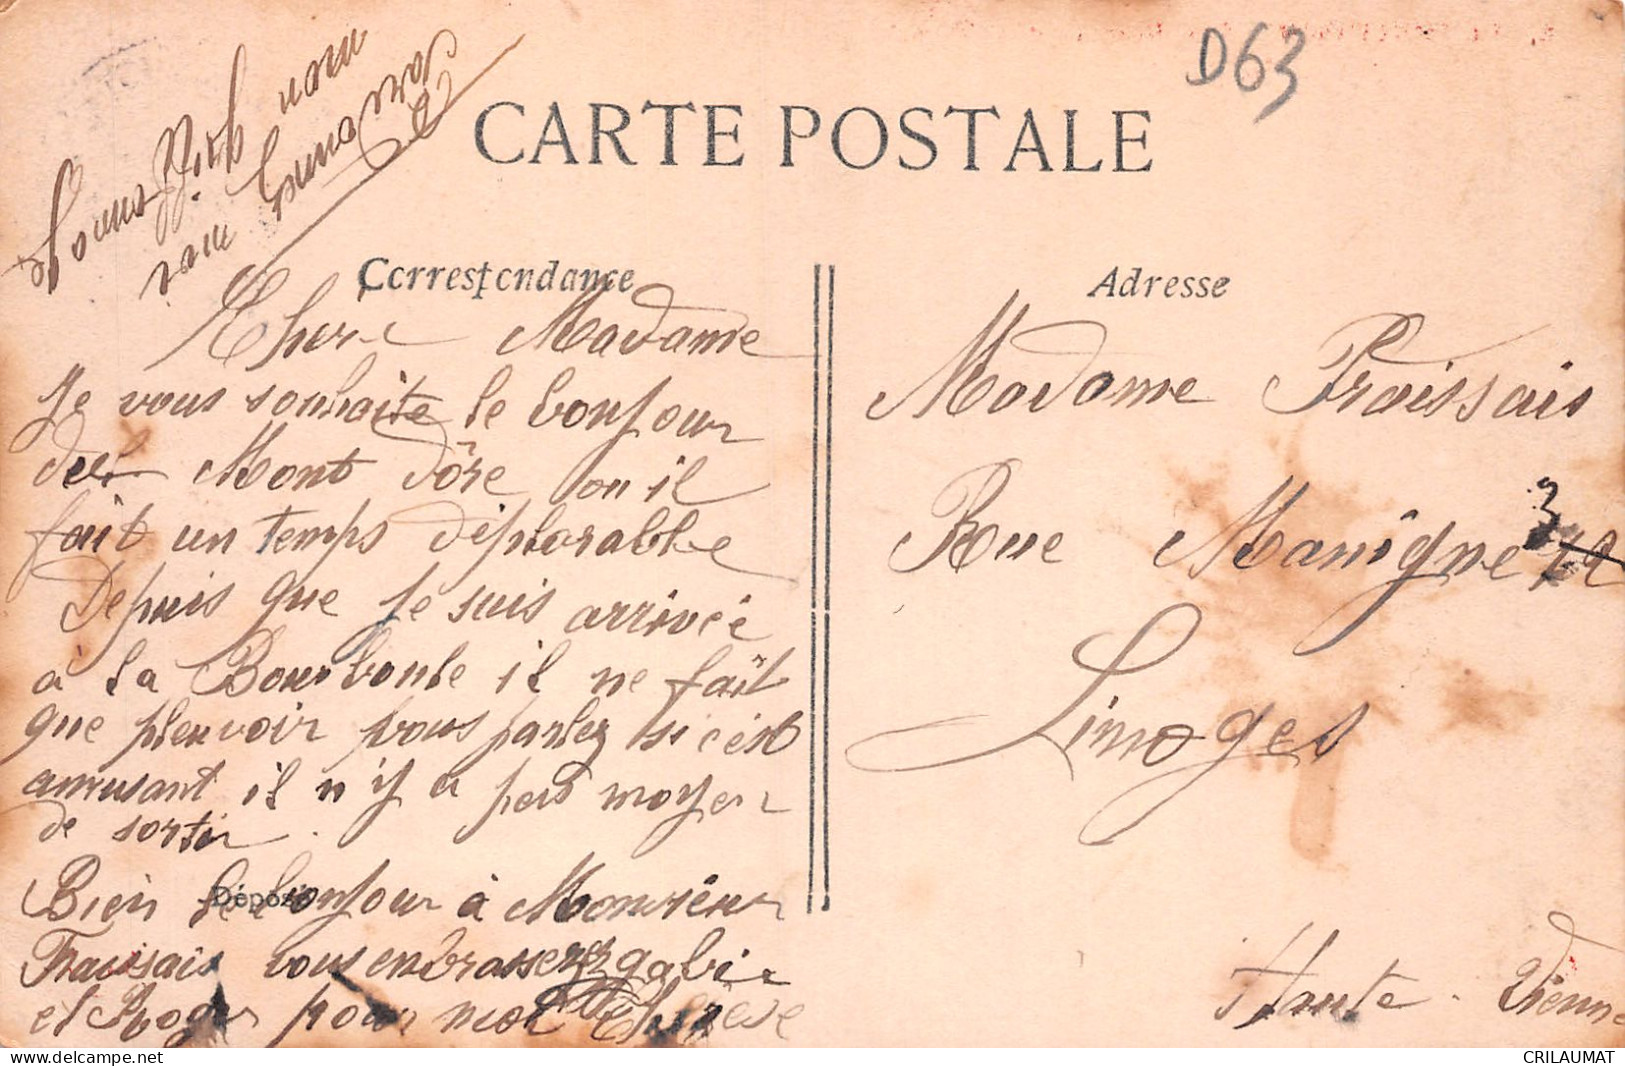 D63
CARTE POSTALE
Correspondance
Adresse
Chere Madame
Je vous souhaite le bonjour
du Mont Dôre ou il
fait un temps déplorable
Depuis que je suis arrivée
à la Bourboule il ne fait
que pleuvoir vous parlez si c'est
amusant il n'y a pas moyen
de sortir.
Bien le bonjour à Monsieur
Fraissais vous embrasserez gabie
et Roger pour moi
Déposé
Madame Fraissais
Rue Manigne 3
Limoges
Haute - Vienne
CRILAUMAT